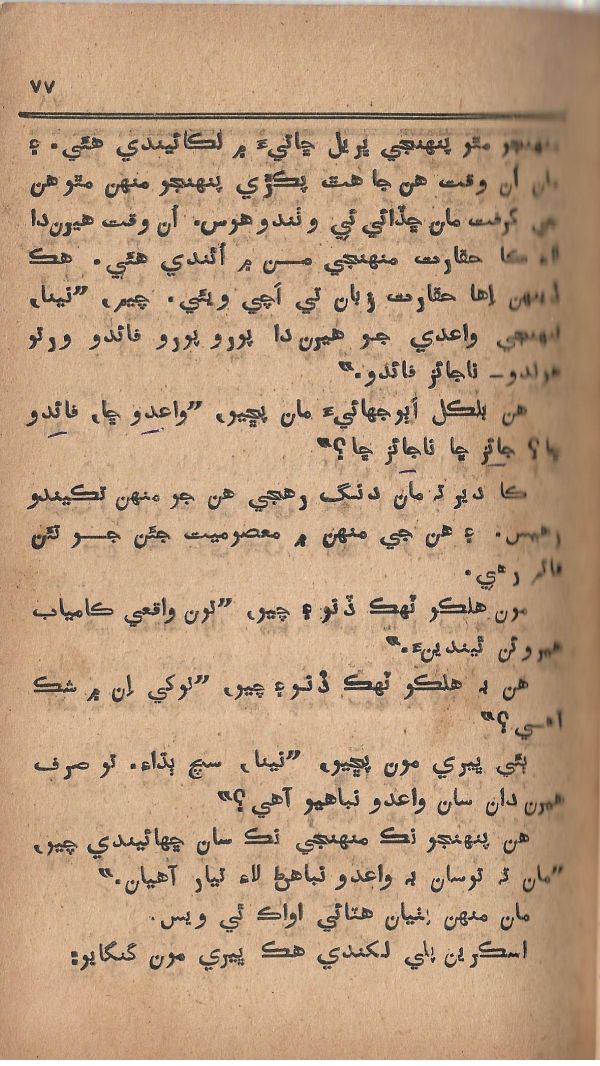 ٧٧
منهنجو مٿو پنهنجي ڀريل ڇاتيءَ ۾ لڪائيندي هئي. ۽
مان اُن وقت هن جا هٿ پڪڙي پنهنجو منهن مٿو هن
جي گرفت مان ڇڏائي ٿي وٺندو هوس. اُن وقت هيرن دا
لاءِ ڪا حقارت منهنجي من ۾ اُٿندي هئي. هڪ
ڏينهن اِها حقارت زبان تي اچي ويئي. چيم, ”نينا,
پنهنجي واعدي جو هيرن دا پورو پورو فائدو ورتو
هوندو ــ ناجائز فائدو.“
هن بلڪل اَٻوجهائيءَ مان پڇيو, ”واعدو ڇا, فائدو
ڇا؟ جائز ڇا ناجائز ڇا؟“
ڪا دير ته مان دنگ رهجي هن جو منهن تڪيندو
رهيس. ۽ هن جي منهن ۾ معصوميت جئن جــو تئن
قائم رهي.
مون هلڪو ٽهڪ ڏنو ۽ چيو, ”تون واقعي ڪامياب
هيروئن ٿيندينءَ.“
هن به هلڪو ٽهڪ ڏنو ۽ چيو, ”توکي اِن ۾ شڪ
آهي؟“
ٻئي ڀيري مون پڇيو, ”نينا, سچ ٻڌاءِ. تو صرف
هيرن دان سان واعدو نباهيو آهي؟“
هن پنهنجو نڪ منهنجي نڪ سان ڇهائيندي چيو,
”مان ته توسان به واعدو نباهڻ لاءِ تيار آهيان.“
مان منهن ٻغيان هٽائي اواڪ ٿي ويس.
اسڪرين پلي لکندي هڪ ڀيري مون گنگايو: